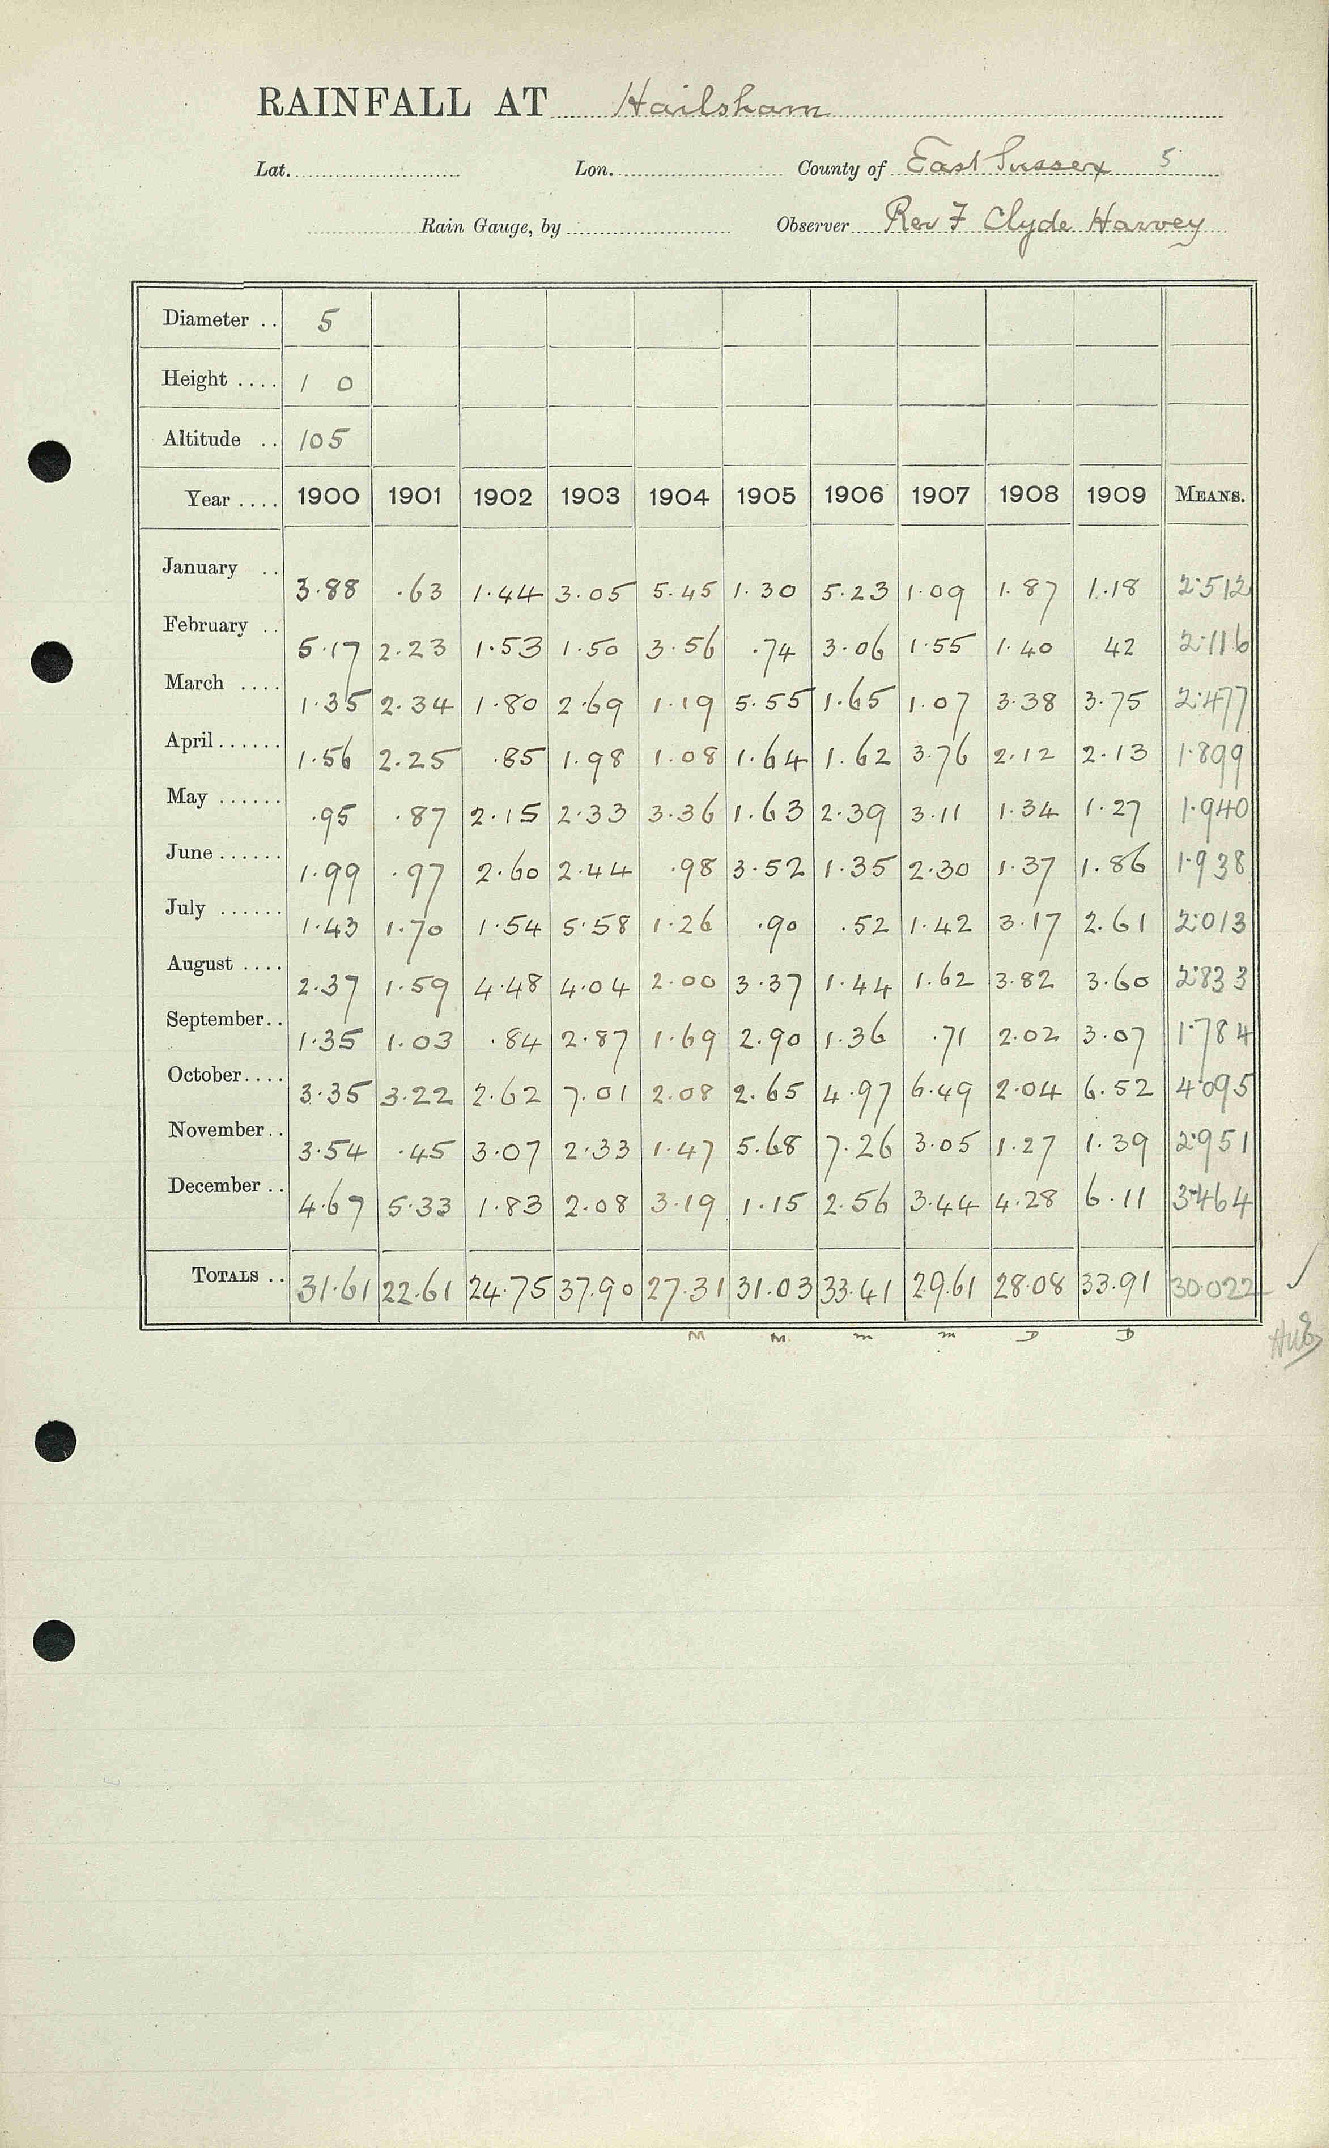 RAINFALL AT Hailsham
Lat. Lon. County of East Sussex 5
Rain Gauge, by Observer Rev F Clyde Harvey
Diameter .. 5
Height .... 1 0
Altitude .. 105
Year .... 1900 1901 1902 1903 1904 1905 1906 1907 1908 1909 MEANS.
January .. 3.88 .63 1.44 3.05 5.45 1.30 5.23 1.09 1.87 1.18 2.512
February .. 5.17 2.23 1.53 1.50 3.56 .74 3.06 1.55 1.40 42 2.116
March .... 1.35 2.34 1.80 2.69 1.19 5.55 1.65 1.07 3.38 3.75 2.477
April...... 1.56 2.25 .85 1.98 1.08 1.64 1.62 3.76 2.12 2.13 1.899
May ...... .95 .87 2.15 2.33 3.36 1.63 2.39 3.11 1.34 1.27 1.940
June...... 1.99 .97 2.60 2.44 .98 3.52 1.35 2.30 1.37 1.86 1.938
July ...... 1.43 1.70 1.54 5.58 1.26 .90 .52 1.42 3.17 2.61 2.013
August .... 2.37 1.59 4.48 4.04 2.00 3.37 1.44 1.62 3.82 3.60 2.833
September.. 1.35 1.03 .84 2.87 1.69 2.90 1.36 .71 2.02 3.07 1.784
October.... 3.35 3.22 2.62 7.01 2.08 2.65 4.97 6.49 2.04 6.52 4.095
November.. 3.54 .45 3.07 2.33 1.47 5.68 7.26 3.05 1.27 1.39 2.951
December .. 4.67 5.33 1.83 2.08 3.19 1.15 2.56 3.44 4.28 6.11 3.464
TOTALS .. 31.61 22.61 24.75 37.90 27.31 31.03 33.41 29.61 28.08 33.91 30.022 ✓
M M m m D D